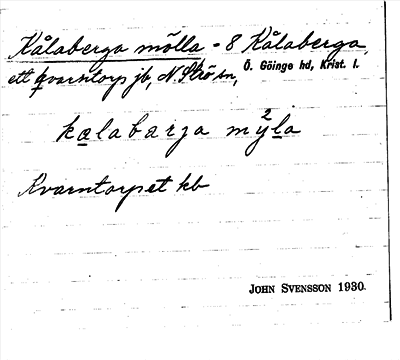 Kålaberga mölla - 8 Kålaberga,
ett qvarntorp jb, N. Strö sn, Ö. Göinge hd, Krist. l.
kalabarja myla
Kvarntorpet kb
JOHN SVENSSON 1930.